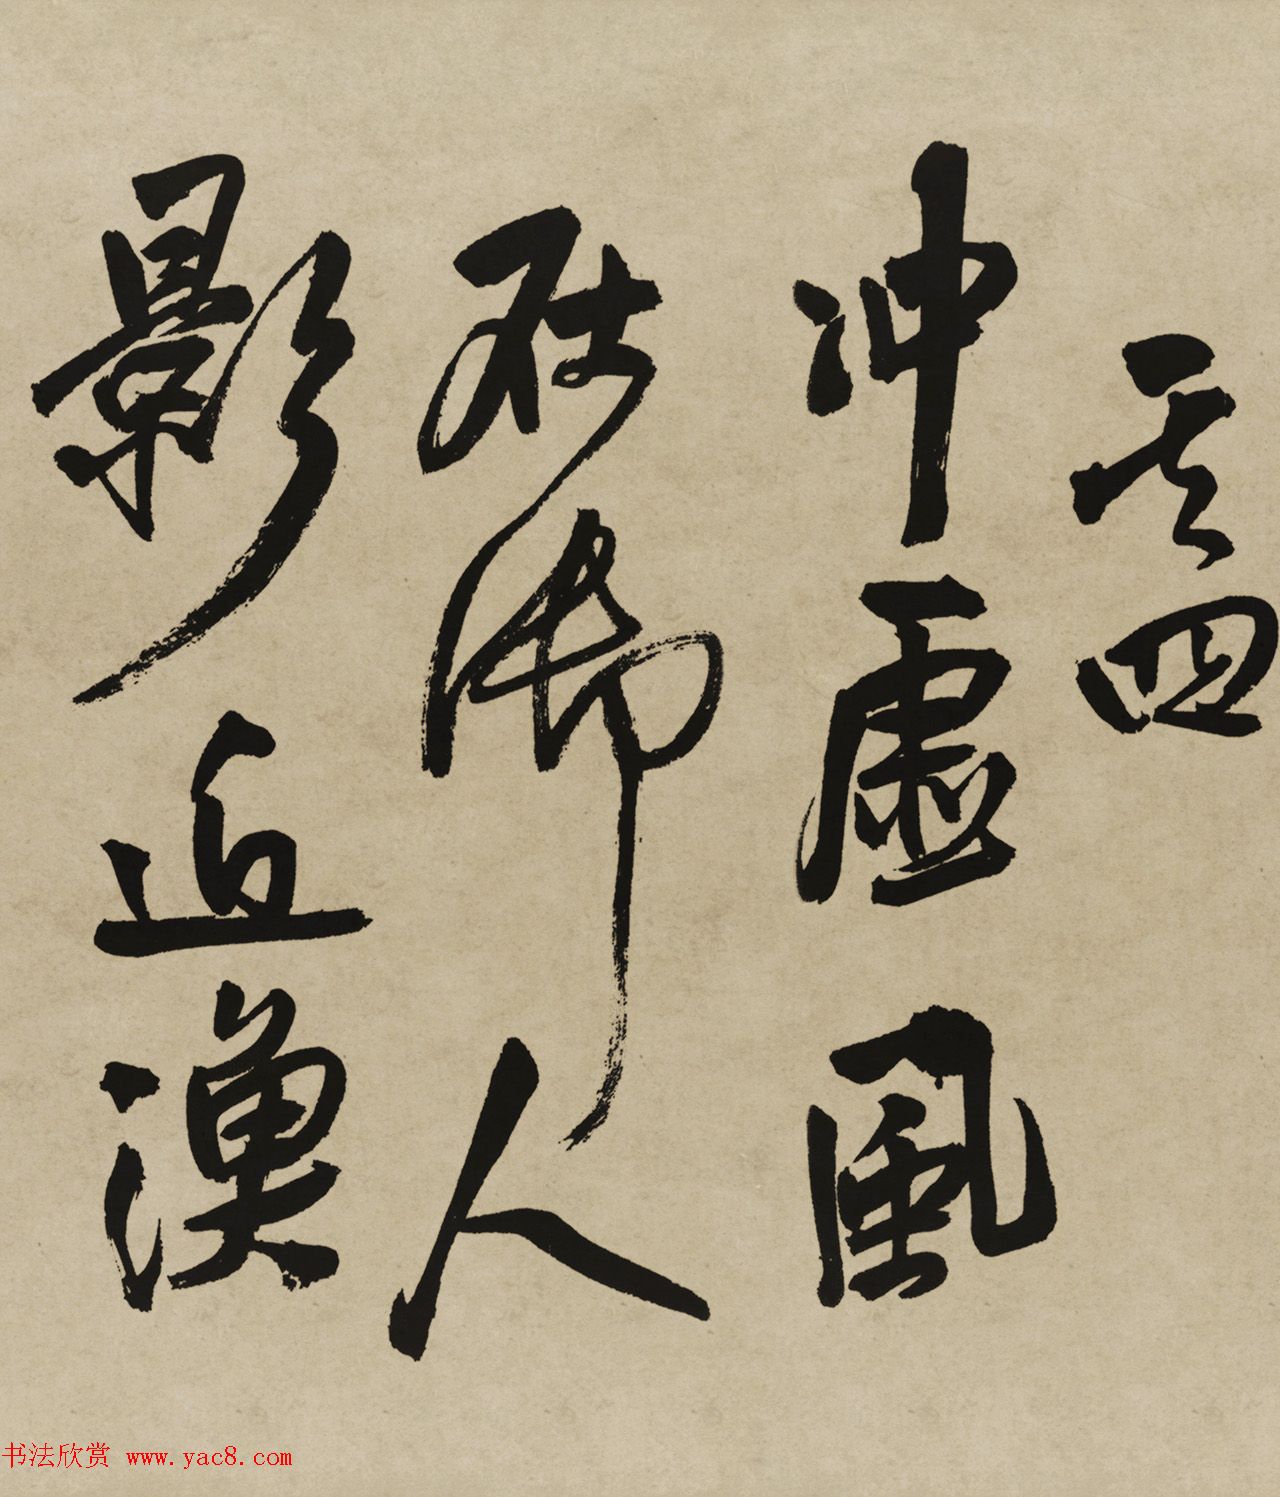 其四
冲虛風
在御人
影近漁
书法欣赏 www.yac8.com